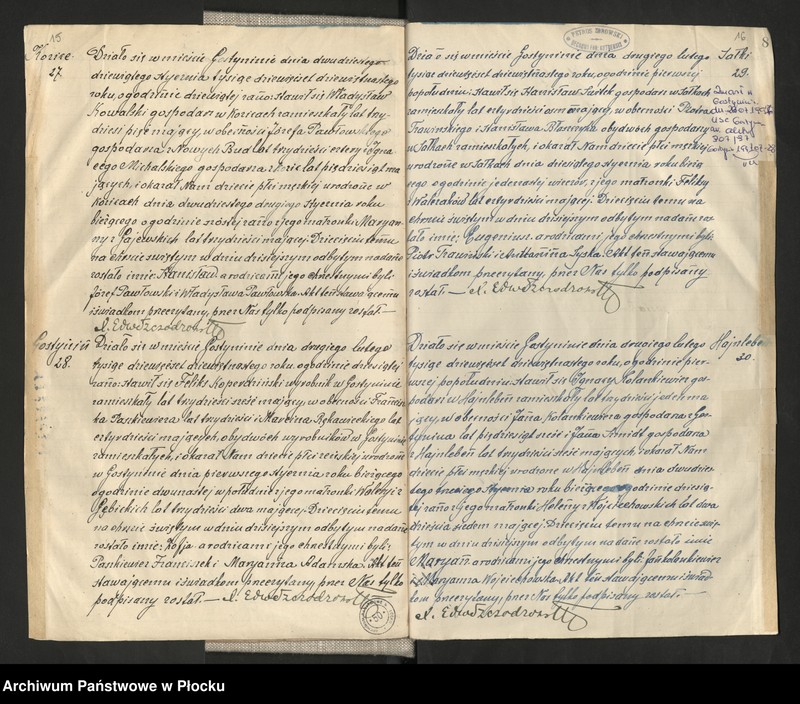 15
Kozice
27.
Działo się w mieście Gostyninie dnia dwudziestego
dziewiątego Stycznia tysiąc dziewięćset dziewiętnastego
roku, o godzinie dziewiątej rano: Stawił się Władysław
Kowalski gospodarz w Kozicach zamieszkały lat trzy-
dzieści pięć mający, w obecności Józefa Pawłowskiego
gospodarza z Nowych Bud lat trzydzieści cztery i Igna-
cego Michalskiego gospodarza z Kozic lat pięćdziesiąt ma-
jących, i okazał Nam dziecię płci męzkiej urodzone w
Kozicach dnia dwudziestego drugiego Stycznia roku
bieżącego o godzinie szóstej rano z jego małżonki Maryan-
ny z Gajewskich lat trzydzieści mającej. Dziecięciu temu
na chrzcie świętym w dniu dzisiejszym odbytym nadane
zostało imie: Stanisław a rodzicami jego chrzestnymi byli:
Józef Pawłowski i Władysława Pawłowska. Akt ten stawającemu
i świadkom przeczytany, przez Nas tylko podpisany został. —
Gostynin
28.
Działo się w mieście Gostyninie dnia drugiego lutego
tysiąc dziewięćset dziewiętnastego roku, o godzinie dziesiątej
rano: Stawił się Feliks Koperdziński wyrobnik w Gostyninie
zamieszkały lat trzydzieści sześć mający, w obecności Francisz-
ka Pankiewicza lat trzydzieści i Marcina Rękawieckiego lat
czterydzieści mających, obydwóch wyrobników w Gostyninie
zamieszkałych, i okazał Nam dziecię płci żeńskiej urodzone
w Gostyninie dnia pierwszego Stycznia roku bieżącego
o godzinie dwunastej w południe z jego małżonki Walerji z
Gębickich lat trzydzieści dwa mającej. Dziecięciu temu
na chrzcie świętym w dniu dzisiejszym odbytym nadane
zostało imie: Zofja a rodzicami jego chrzestnymi byli:
Pankiewicz Franciszek i Maryanna Adamska. Akt ten
stawającemu i świadkom przeczytany przez Nas tylko
podpisany został. —
16
8
Sałki
29.
Działo się w mieście Gostyninie dnia drugiego lutego
tysiąc dziewięćset dziewiętnastego roku, o godzinie pierwszej
popołudniu: Stawił się Stanisław Szałek gospodarz w Sałkach
zamieszkały lat czterydzieści osm mający, w obecności Piotra
i Stanisława obydwóch gospodarzy
w Sałkach zamieszkałych, i okazał Nam dziecię płci męzkiej
urodzone w Sałkach dnia dziesiątego Stycznia roku bieżą-
cego o godzinie jedenastej wieczór, z jego małżonki Feliksy
z Walczaków lat czterydzieści mającej. Dziecięciu temu na
chrzcie świętym w dniu dzisiejszym odbytym nadane zo-
stało imie: Eugeniusz a rodzicami jego chrzestnymi byli:
Piotr i Łyska. Akt ten stawającemu
i świadkom przeczytany, przez Nas tylko podpisany
został. —
Hajnleben
30.
Działo się w mieście Gostyninie dnia drugiego lutego
tysiąc dziewięćset dziewiętnastego roku, o godzinie pier-
wszej popołudniu: Stawił się Ignacy Kolankiewicz gos-
podarz w Hajnleben zamieszkały lat trzydzieści jeden ma-
jący, w obecności Jana Kolankiewicza gospodarza z Gos-
tynina lat pięćdziesiąt sześć i Jana Szmidt gospodarza
z Hajnleben lat trzydzieści sześć mających, i okazał Nam
dziecię płci męzkiej urodzone w Hajnleben dnia dwudzies-
tego trzeciego Stycznia roku bieżącego o godzinie dziesią-
tej rano z jego małżonki Heleny z Wojciechowskich lat dwa
dzieścia siedem mającej. Dziecięciu temu na chrzcie świę-
tym w dniu dzisiejszym odbytym nadane zostało imie
Maryan, a rodzicami jego chrzestnymi byli: Jan Kolankiewicz
i Maryanna Wojciechowska. Akt ten stawającemu i świad-
kom przeczytany, przez Nas tylko podpisany został. —
Archiwum Państwowe w Płocku